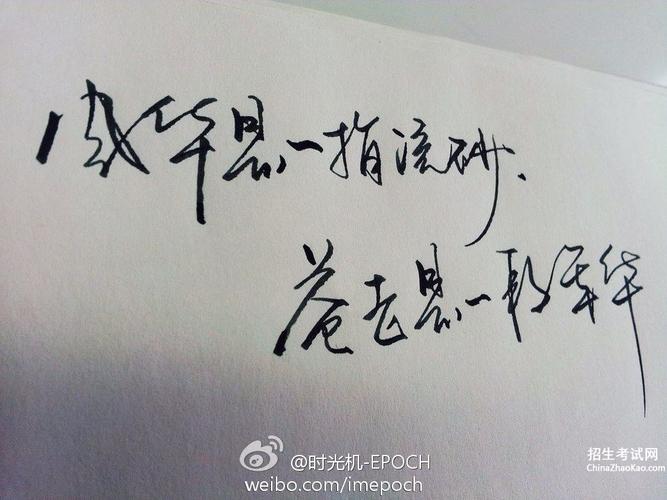 风华是一指流砂，
苍老是一段年华
@时光机-EPOCH
weibo.com/imepoch
招生考试网
ChinaZhaoKao.com